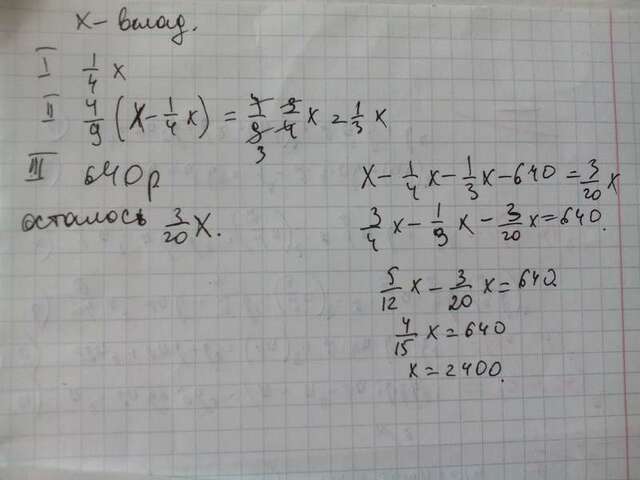 x – вклад.
I 1/4 x
II 4/9 (x - 1/4 x) = 4/9 3/4 x = 1/3 x
3
III 640р
осталось 3/20 x.
x - 1/4 x - 1/3 x - 640 = 3/20 x
3/4 x - 1/3 x - 3/20 x = 640.
5/12 x - 3/20 x = 640
4/15 x = 640
x = 2400.